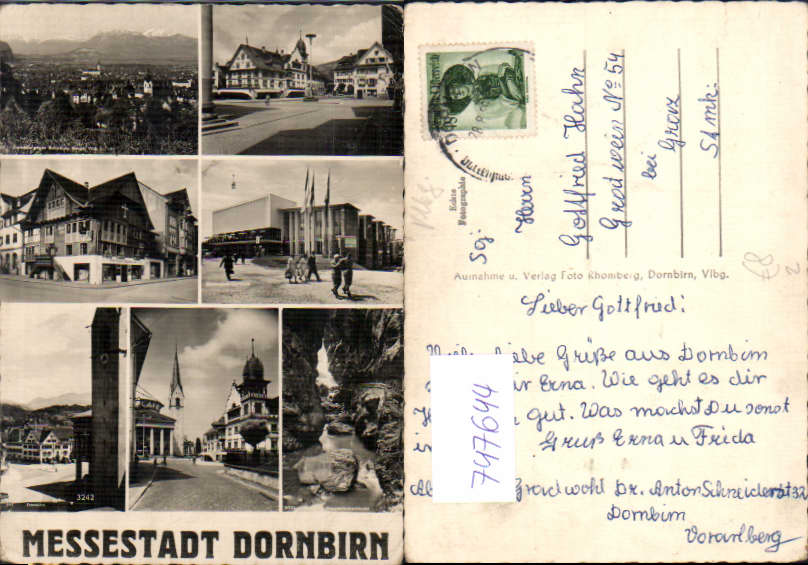 3242
MESSESTADT DORNBIRN
Echte
Fotographie
Herrn
Gottfried Hahn
Gradwein No 54
bei
Graz
Stmk.
Aufnahme u. Verlag Foto Rhomberg, Dornbirn, Vlbg.
Lieber Gottfried!
liebe Grüße aus Dornbirn
Erna. Wie geht es dir
gut. Was machst Du sonst
Gruß Erna u Frida
747644
Gradwohl Dr. Anton Schneiderstr 32
Dornbirn
Vorarlberg